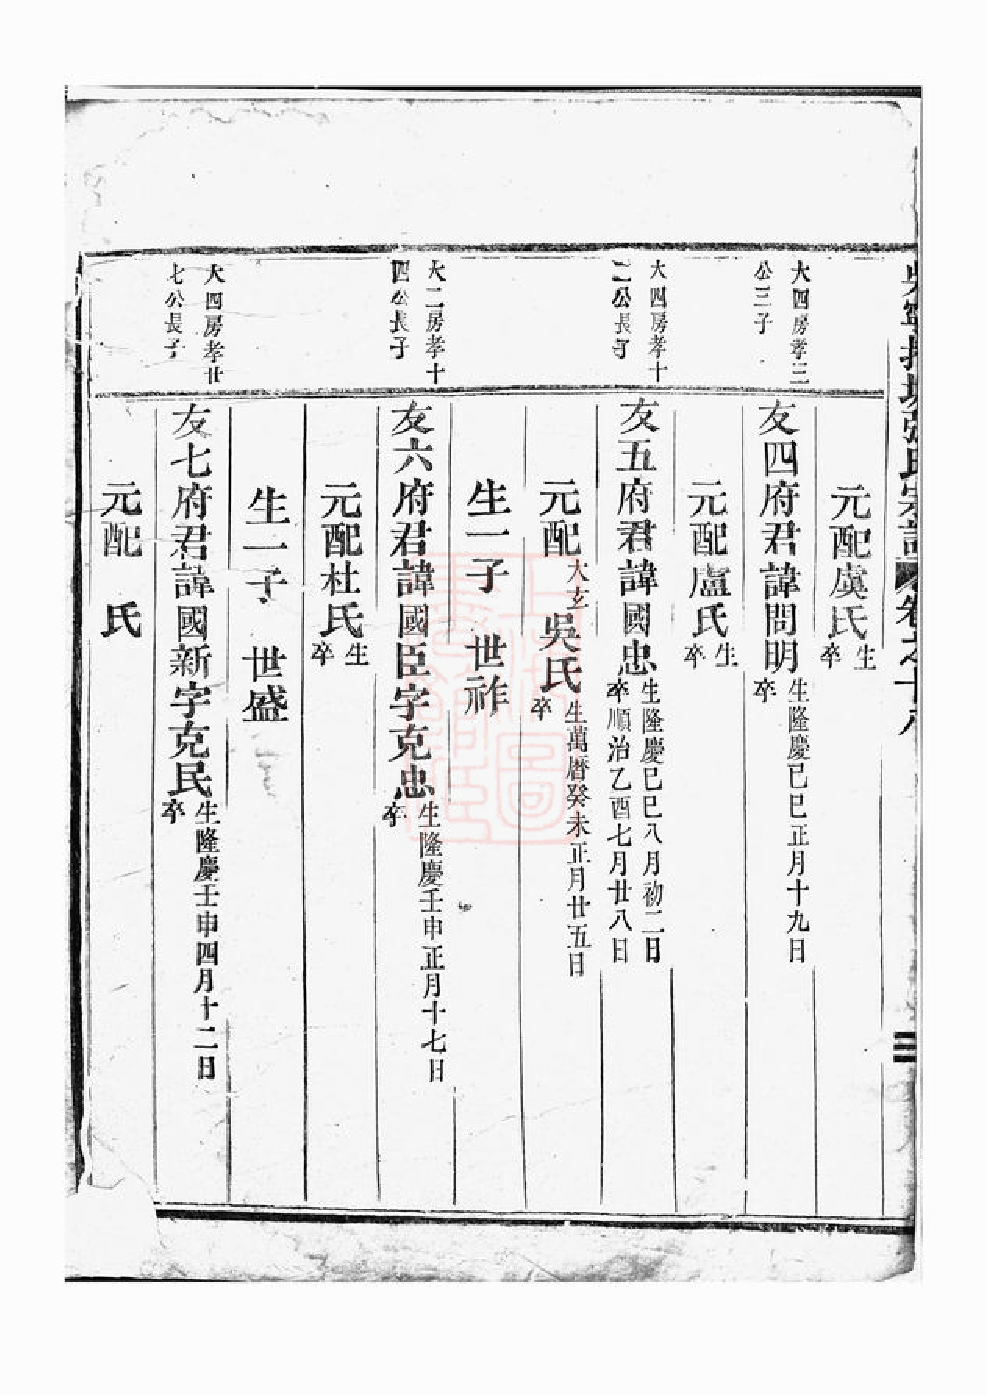 元配虞氏生卒
大四房孝三公三子
友四府君諱問明生隆慶己巳正月十九日卒
元配盧氏生卒
大四房孝十二公長子
友五府君諱國忠生隆慶己巳八月初二日卒順治乙酉七月廿八日
元配大玄吳氏生萬曆癸未正月廿五日卒
生一子 世祚
大二房孝十四公長子
友六府君諱國臣字克忠生隆慶壬申正月十七日卒
元配杜氏生卒
生一子 世盛
大四房孝廿七公長子
友七府君諱國新字克民生隆慶壬申四月十二日卒
元配 氏